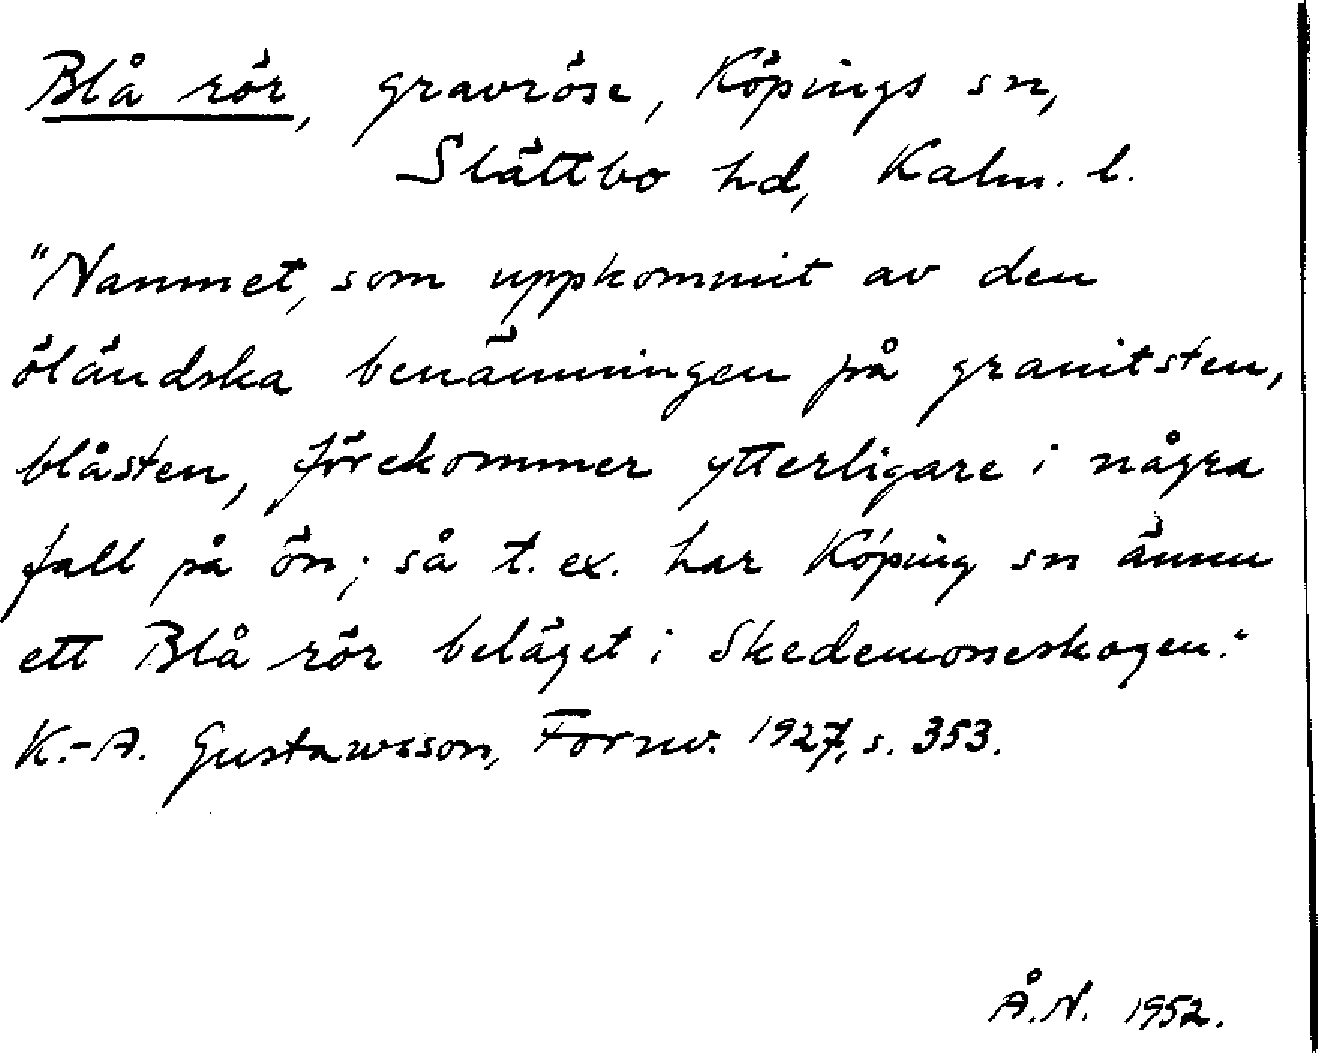 Blå rör, gravröse, Köpings sn,
Slättbo hd, Kalm. l.
"Namnet, som uppkommit av den
öländska benämningen på granitsten,
blåsten, förekommer ytterligare i några
fall på ön; så t. ex. har Köping sn ännu
ett Blå rör beläget i Skedemosseskogen."
K.-A. Gustawsson, Fornv. 1927, s. 353.
Å.N. 1952.